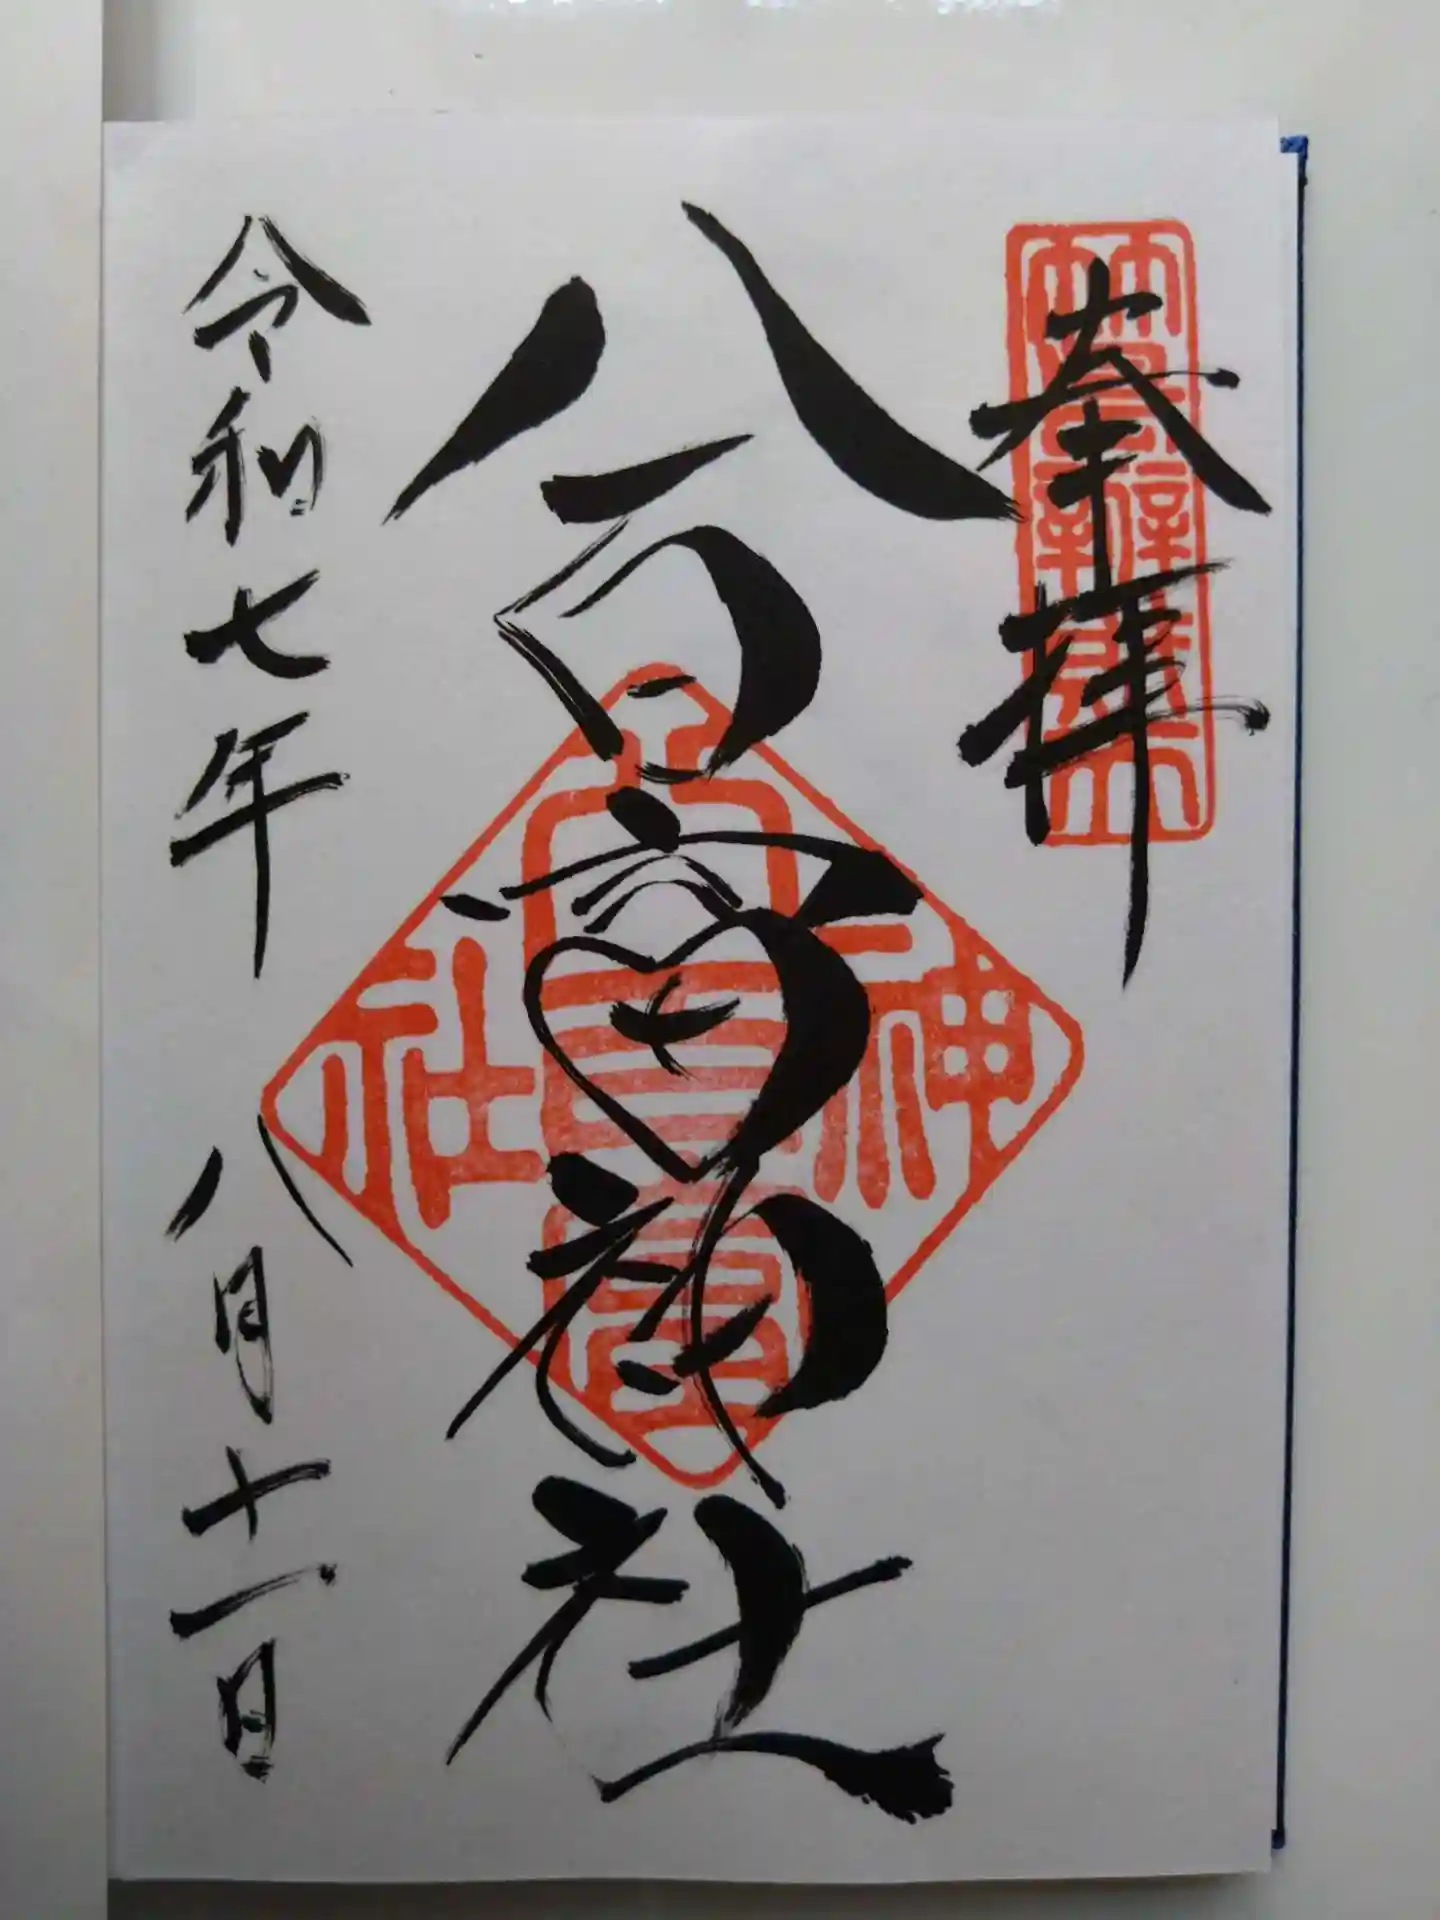 奉拝
八百富神社
八百富
神社
令和七年八月十一日